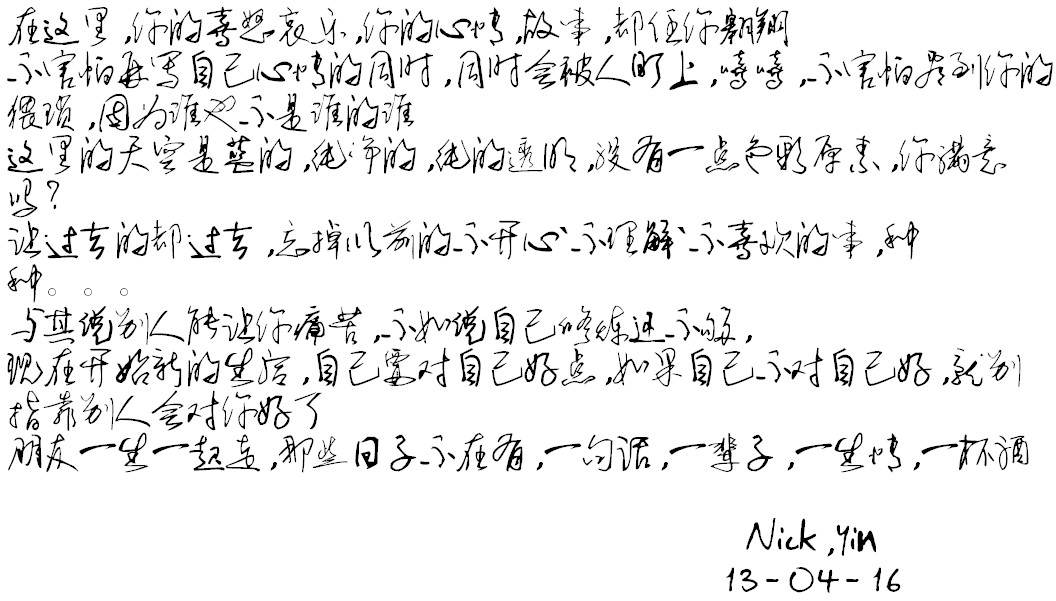 在这里,你的喜怒哀乐,你的心情,故事,都任你翱翔
不害怕再写自己心情的同时,同时会被人盯上,嘻嘻,不害怕受到你的
猥琐,因为谁也不是谁的谁
这里的天空是蓝的,纯净的,纯的透明,没有一点色彩原素,你满意
吗?
让过去的都过去,忘掉以前的不开心、不理解、不喜欢的事,种
种。。。
与其说别人能让你痛苦,不如说自己修炼还不够,
现在开始新的生活,自己要对自己好点,如果自己不对自己好,就别
指靠别人会对你好了
朋友一生一起走,那些日子不在有,一句话,一辈子,一生情,一杯酒
Nick,Yin
13-04-16